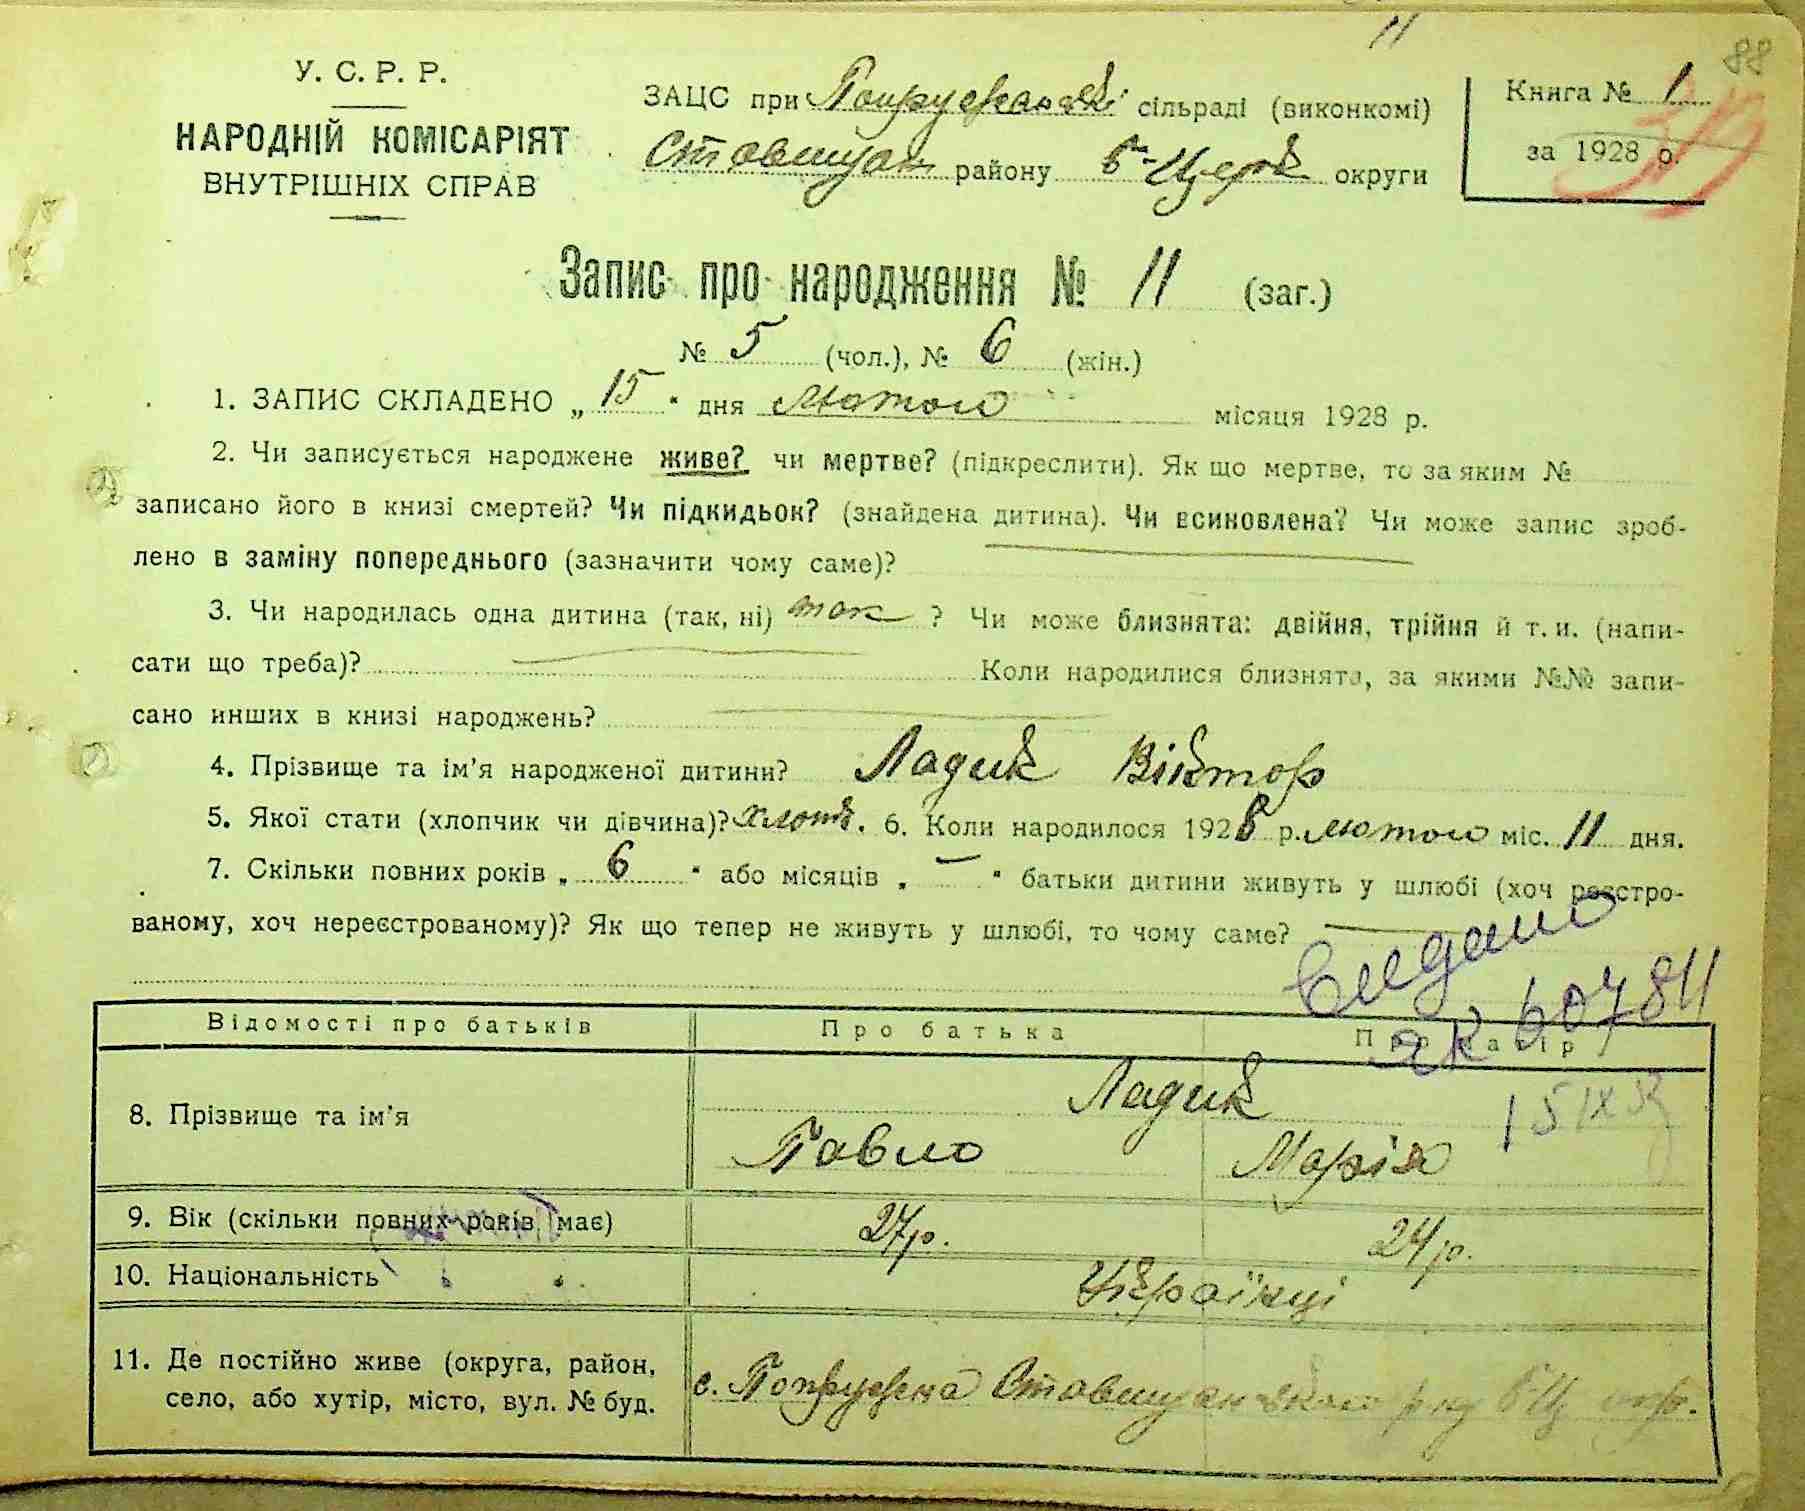 11
88
У. С. Р. Р.
НАРОДНІЙ КОМІСАРІЯТ
ВНУТРІШНІХ СПРАВ
ЗАЦС при Попружанській сільраді (виконкомі)
Ставищан району Б-Церк округи
Книга № 1
за 1928 р.
Запис про народження № 11 (заг.)
№ 5 (чол.), № 6 (жін.)
1. ЗАПИС СКЛАДЕНО „ 15 “ дня Лютого місяця 1928 р.
2. Чи записується народжене живе? чи мертве? (підкреслити). Як що мертве, то за яким №
записано його в книзі смертей? Чи підкидьок? (знайдена дитина). Чи всиновлена? Чи може запис зроб-
лено в заміну попереднього (зазначити чому саме)?
3. Чи народилась одна дитина (так, ні) так ? Чи може близнята: двійня, трійня й т. и. (напи-
сати що треба)? Коли народилися близнята, за якими №№ запи-
сано инших в книзі народжень?
4. Прізвище та ім’я народженої дитини? Ладик Віктор
5. Якої стати (хлопчик чи дівчина)? хлопч. 6. Коли народилося 1928 р. лютого міс. 11 дня.
7. Скільки повних років „ 6 “ або місяців „ — “ батьки дитини живуть у шлюбі (хоч реєстро-
ваному, хоч нереєстрованому)? Як що тепер не живуть у шлюбі, то чому саме? —
видано
ЯК 607811
Відомості про батьків Про батька Про матір
15 IX
8. Прізвище та ім’я Ладик
Павло Марія
9. Вік (скільки повних років має) 27 р. 24 р.
10. Національність Українці
11. Де постійно живе (округа, район,
село, або хутір, місто, вул. № буд.
с. Попружна Ставищанського р-ну Б-Ц окр.